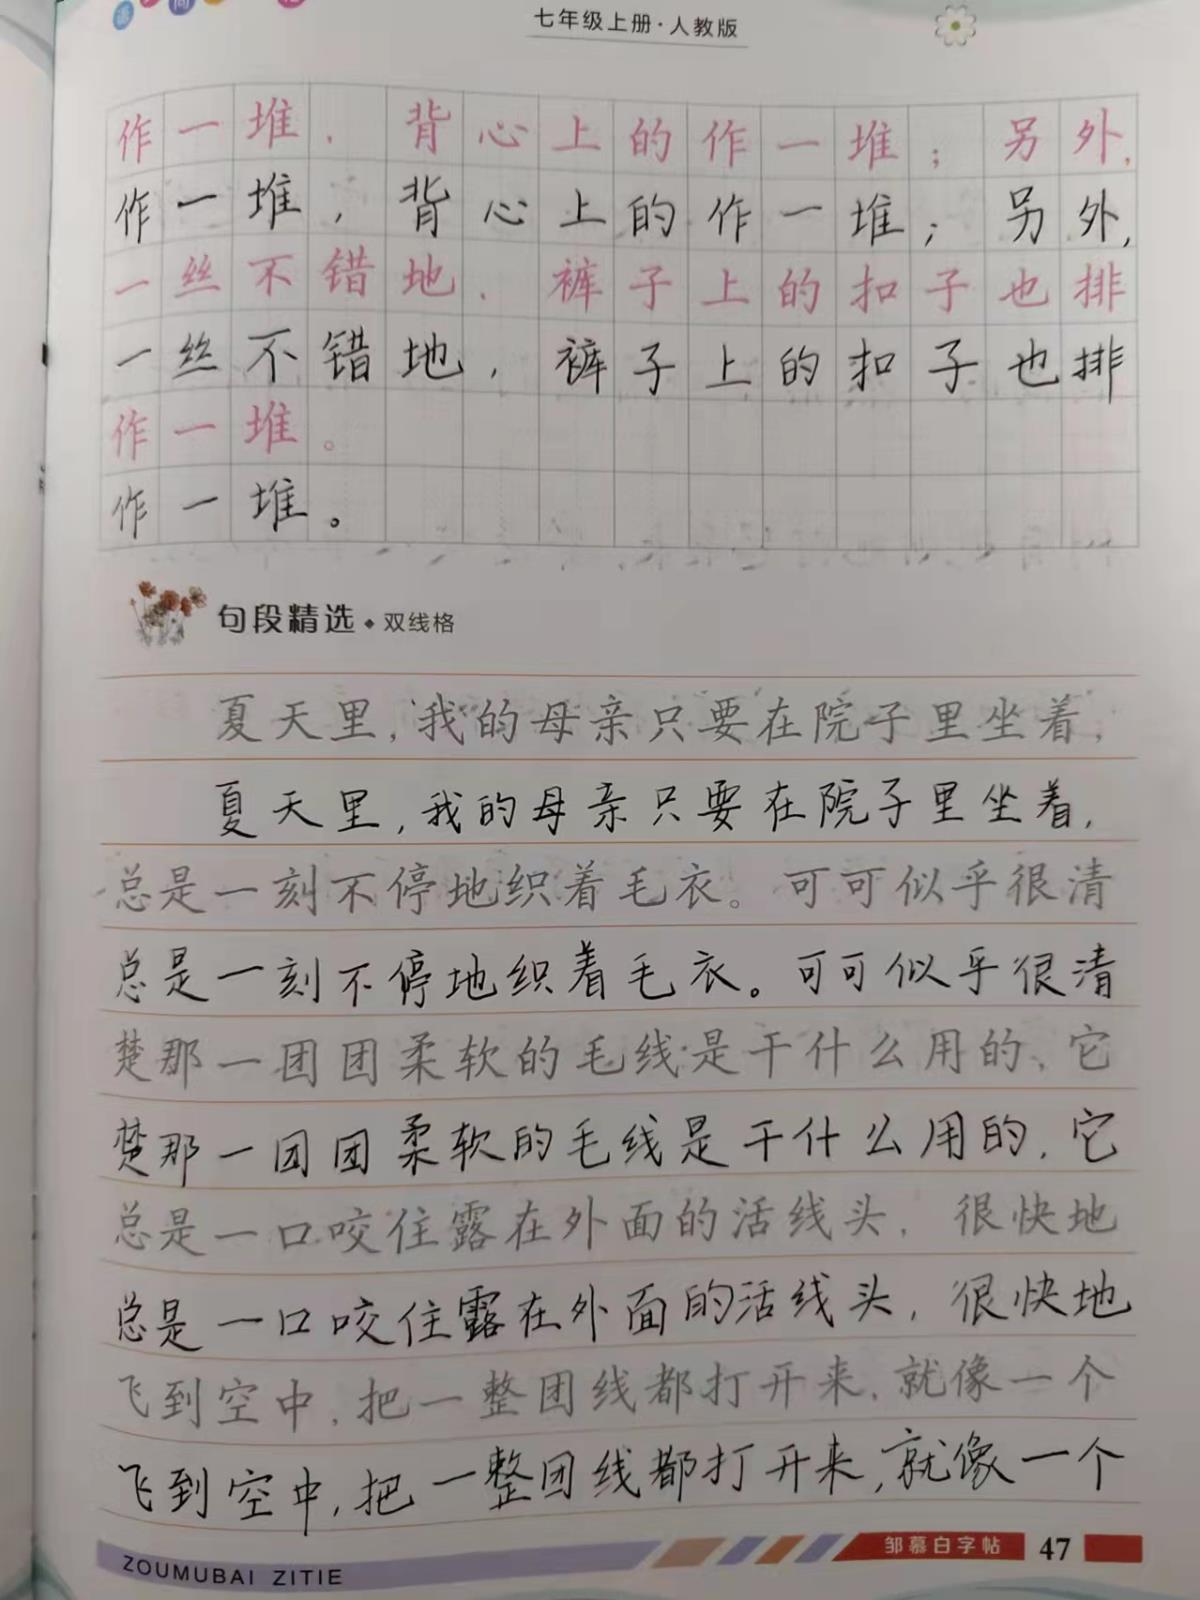 七年级上册·人教版
作一堆，背心上的作一堆；另外，
作一堆，背心上的作一堆；另外，
一丝不错地，裤子上的扣子也排
一丝不错地，裤子上的扣子也排
作一堆。
作一堆。
句段精选·双线格
夏天里，我的母亲只要在院子里坐着，
夏天里，我的母亲只要在院子里坐着，
总是一刻不停地织着毛衣。可可似乎很清
总是一刻不停地织着毛衣。可可似乎很清
楚那一团团柔软的毛线是干什么用的，它
楚那一团团柔软的毛线是干什么用的，它
总是一口咬住露在外面的活线头，很快地
总是一口咬住露在外面的活线头，很快地
飞到空中，把一整团线都打开来，就像一个
飞到空中，把一整团线都打开来，就像一个
ZOUMUBAI ZITIE 邹慕白字帖 47